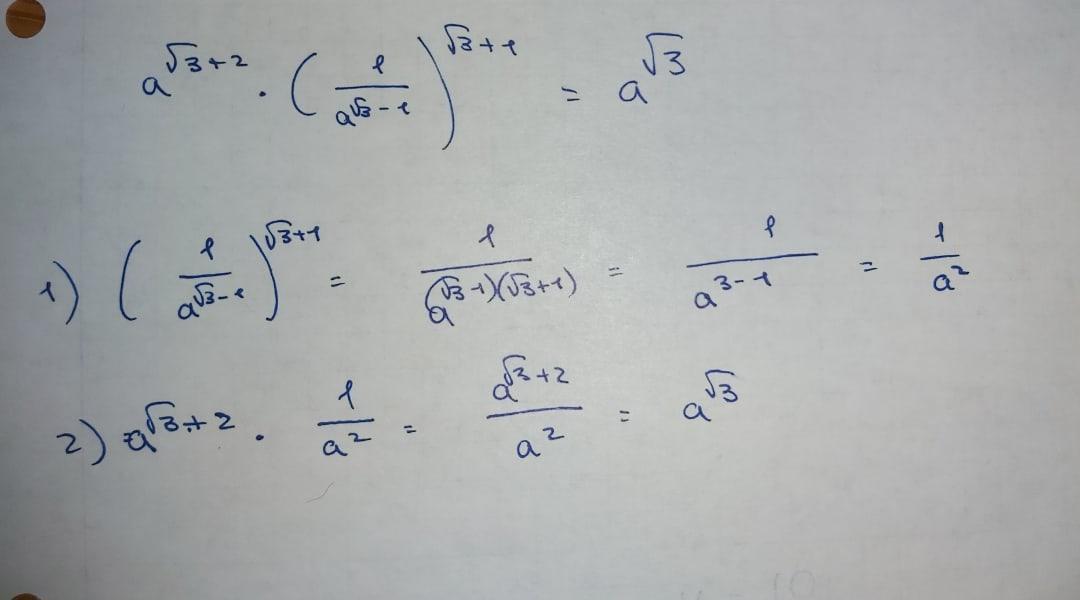 a^{√3+2} · (1/a^{√3-1})^{√3+1} = a^{√3}
1) (1/a^{√3-1})^{√3+1} = 1/a^{(√3-1)(√3+1)} = 1/a^{3-1} = 1/a^2
2) a^{√3+2} · 1/a^2 = a^{√3+2}/a^2 = a^{√3}